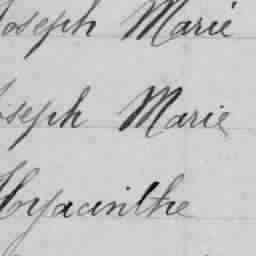 Joseph Marie
Joseph Marie
Hyacinthe